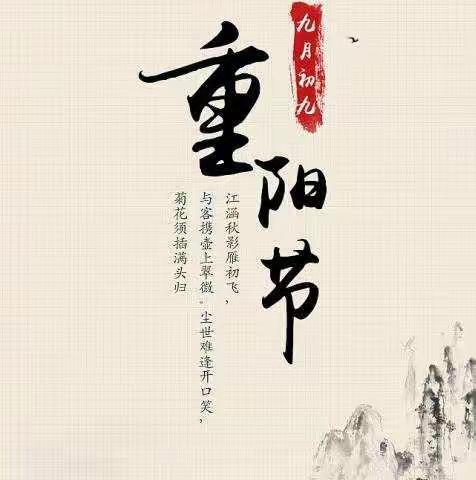 九月初九
重阳节
江涵秋影雁初飞，
与客携壶上翠微。尘世难逢开口笑，
菊花须插满头归